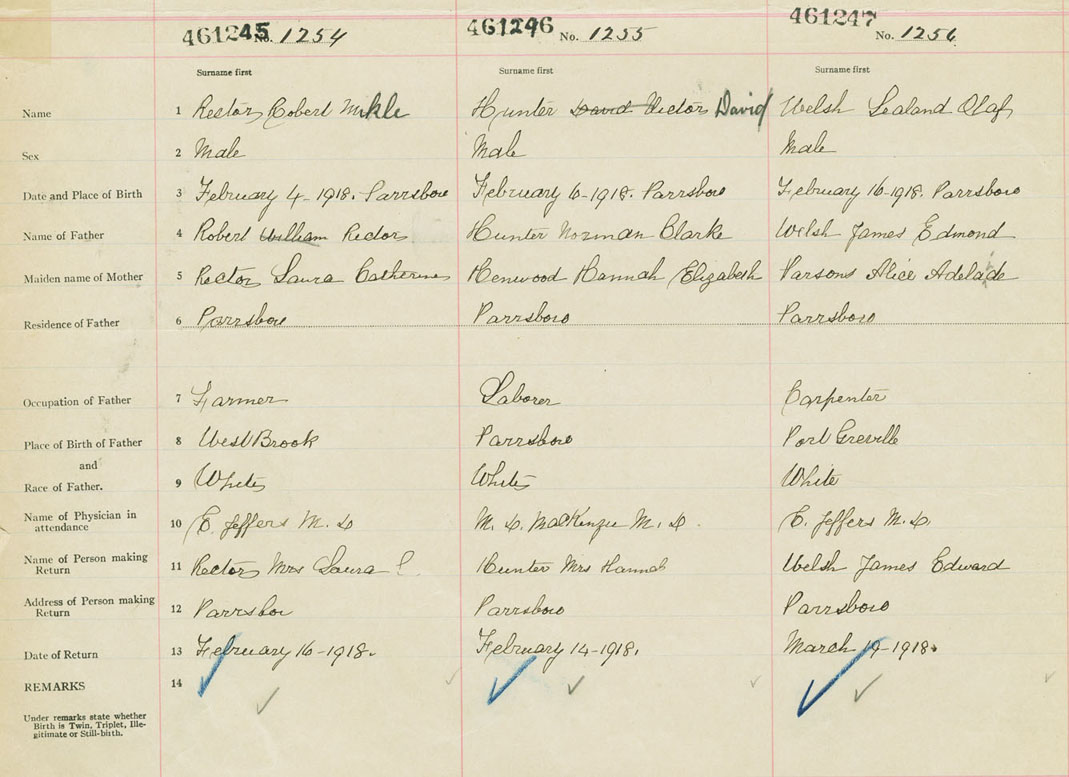 461245 461246 461247
No. 1254 No. 1255 No. 1256
Surname first Surname first Surname first
Name 1 Rector Robert Mikle Hunter David Victor David Welsh Lealand Olaf
Sex 2 Male Male Male
Date and Place of Birth 3 February 4-1918. Parrsboro February 6-1918. Parrsboro February 16-1918. Parrsboro
Name of Father 4 Robert William Rector Hunter Norman Clarke Welsh James Edmond
Maiden name of Mother 5 Rector Laura Catherine Henwood Hannah Elizabeth Parsons Alice Adelade
Residence of Father 6 Parrsboro Parrsboro Parrsboro
Occupation of Father 7 Farmer Laborer Carpenter
Place of Birth of Father 8 West Brook Parrsboro Port Greville
and
Race of Father. 9 White White White
Name of Physician in
attendance 10 E. Jeffers M. D M. D. MacKenzie M. D. E. Jeffers M. D.
Name of Person making
Return 11 Rector Mrs Laura C. Hunter Mrs Hannah Welsh James Edward
Address of Person making
Return 12 Parrsboro Parrsboro Parrsboro
Date of Return 13 February 16-1918. February 14-1918. March 19-1918.
REMARKS 14
Under remarks state whether
Birth is Twin, Triplet, Ille-
gitimate or Still-birth.